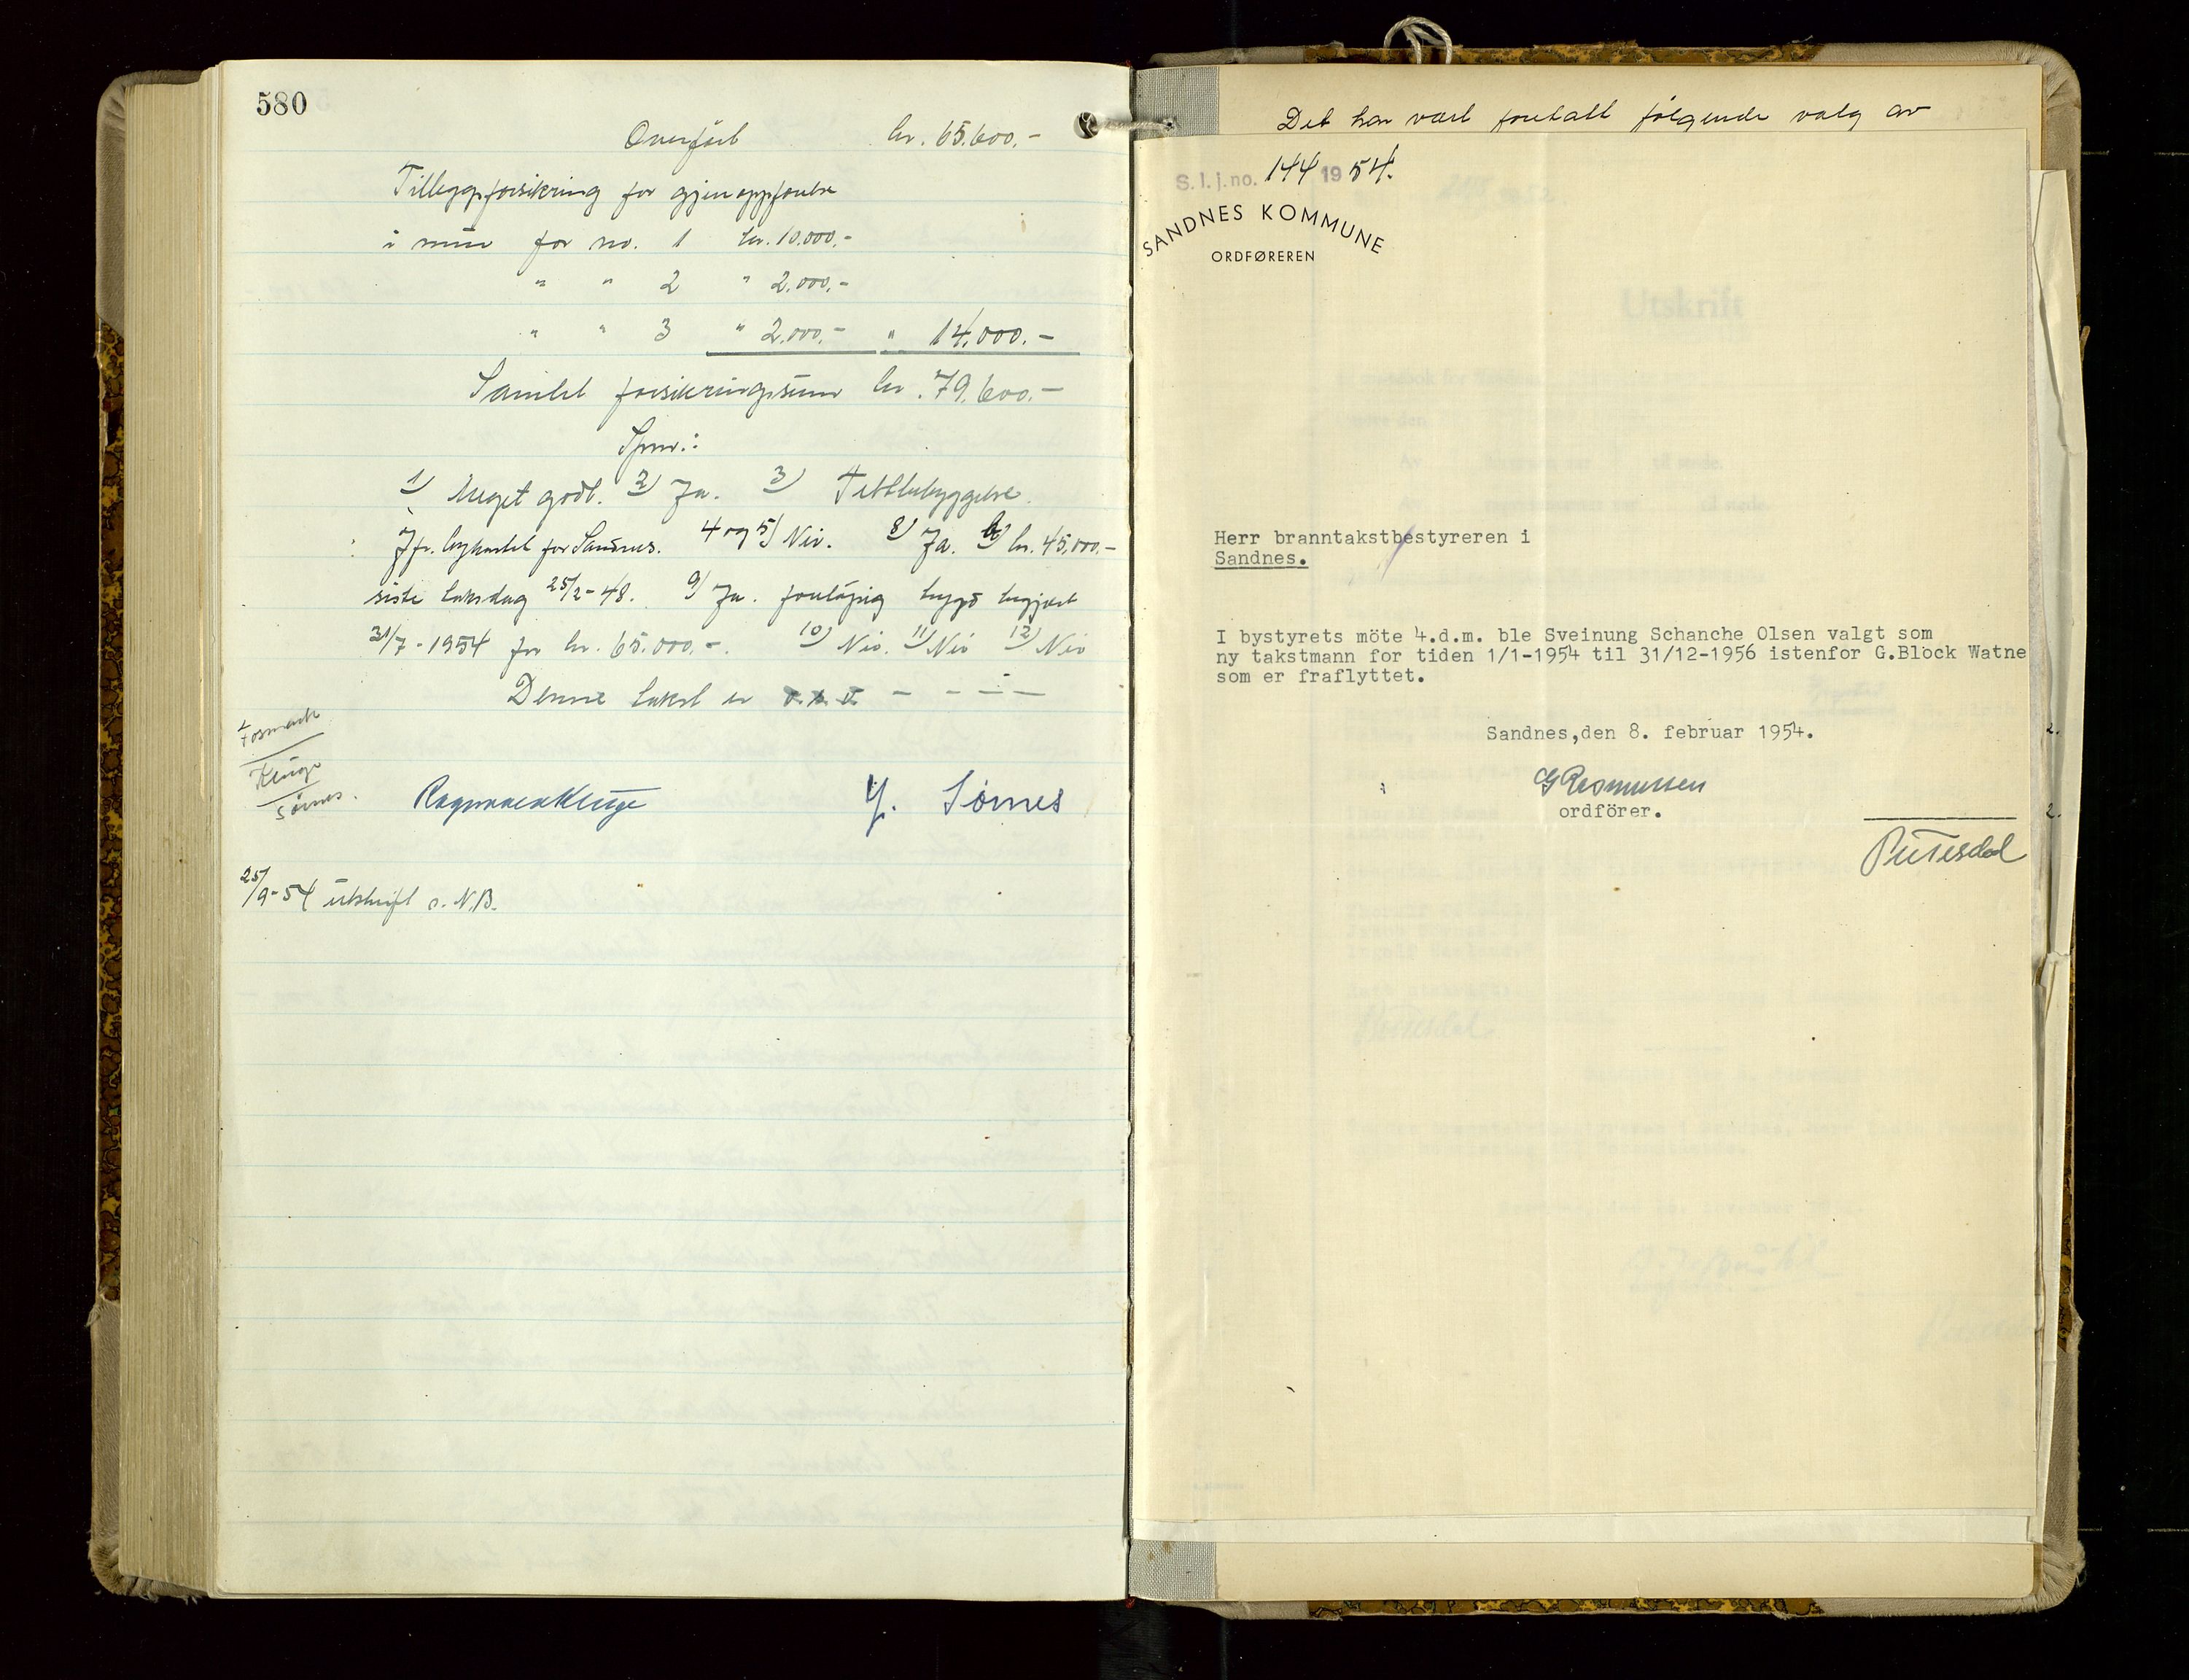 580
Overført kr. 65.600.-
Tilleggsforsikring for gjenoppförelse
i mur for no. 1 kr. 10.000.-
" " 2 " 2.000.-
" " 3 " 2.000.- " 14.000.-
Samlet forsikringssum kr. 79.600.-
Spm.:
1) Meget godt. 2) Ja. 3) Tettbebyggelse.
Jfr. bykartet for Sandnes. 4 og 5) Nei. 8) Ja. kr. 45.000.-
siste taksdag 25/2-48. 9) Ja. foreløpig bygd begjært
31/7-1954 for kr. 65.000.-. 10) Nei. 11) Nei 12) Nei
Denne takst er o.s.v. - - - -
Kluge
Sörnes.
Ragnvald Kluge Y. Sörnes
25/9-54 utskrift s. N.B.
Det har vært foretatt følgende valg av
S. l. j. no. 144 1954.
SANDNES KOMMUNE
ORDFØREREN
Herr branntakstbestyreren i
Sandnes.
I bystyrets möte 4.d.m. ble Sveinung Schanche Olsen valgt som
ny takstmann for tiden 1/1-1954 til 31/12-1956 istenfor G.Block Watne
som er fraflyttet.
Sandnes,den 8. februar 1954.
G Rasmussen
ordförer.
2.
2.